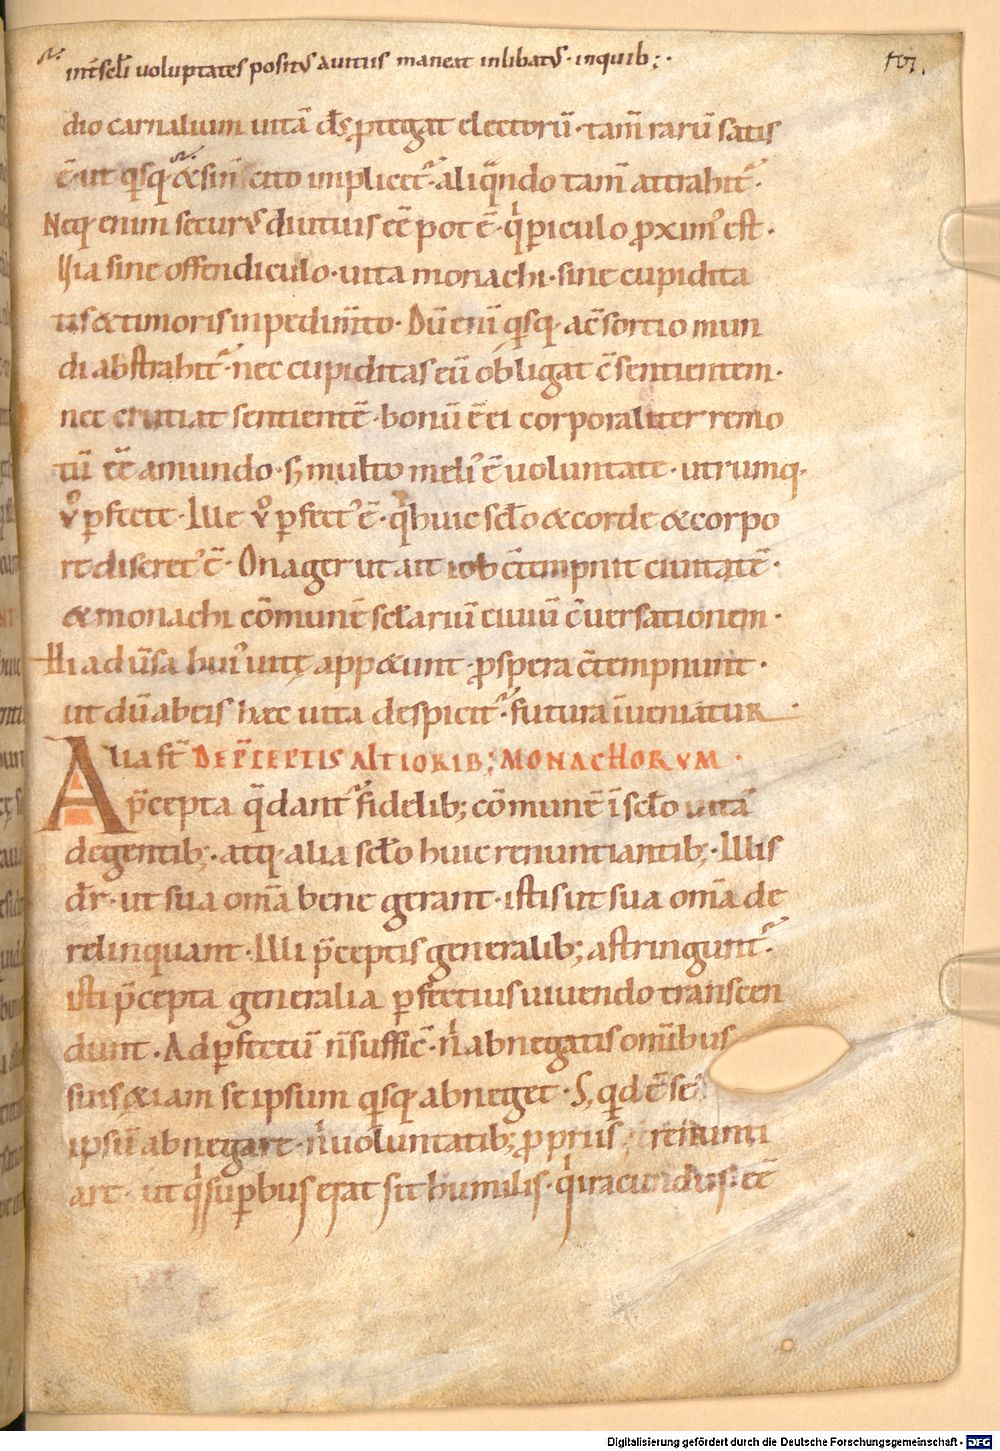 int̄ sclī voluptates positꝰ avitiis maneat inlibatꝰ · inquib; ·
dio carnalium uitā ds̄ ꝓtegat electorū · tam̄ rarū satis
ē · ut qisq; & sin̄ cito implicet᷑ · aliq̄ndo tam̄ attrahit᷑ ·
Neq; enim securꝰ diutius eē potē · q̇ ꝑiculo ꝓximꝰ est ·
Uia sine offendiculo · uita monachi · sine cupidita
tis & timoris inpedim̄to · Dū eni qisq; ac̄sortio mun
di abstrahit᷑ · nec cupiditas eū obligat c̄sentientem ·
nec cruciat sentientē · bonū ē ei corporaliter remo
tū eē amundo · sꝫ multo meliꝰ ē uoluntate · utrumq; ·
v̊ ꝑfecte · Ille v̊ ꝑfectꝰ ē · q̇ huic scl̄o & corde & corpo
re discretꝰ ē · Onager ut ait iob c̄tempnit ciuitatē ·
& monachi cōmunē scl̄ariū ciuiū c̄uersationem ·
Hi aduersa huiꝰ uitę app&unt · ꝓspera c̄tempnunt ·
ut dū abeis haec uita despicit᷑ · futura īueniatur
Alia st̄ DE P̄CEPTIS ALTIORIB; MONACHORVM ·
p̄cepta q̄ dant᷑ fidelib; cōmunē ī scl̄o uitā
degentib; · atq; alia scl̄o huic renuntiantib; · Illis
dr̄ · ut sua om̄a bene gerant · istis ut sua om̄a de
relinquant · Illi p̄ceptis generalib; astringunt᷑ ·
isti p̄cepta generalia ꝑfectius uiuendo transcen
dunt · Ad ꝑfectū n̄ suffic̄ · n̊ abnegatis omībus
suis &iam se ipsum qisq; abneget · Sꝫ qid ē se
ipsū abnegare · n̊ uoluntatib; ꝓpriis renunti
are · ut q̇ suꝑbus erat sit humilis · q̇ iracundus · eē
Digitalisierung gefördert durch die Deutsche Forschungsgemeinschaft - DFG